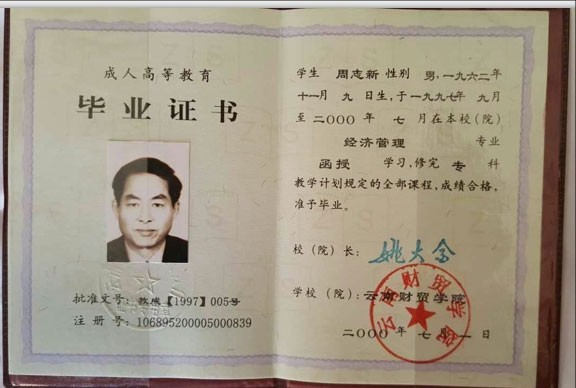 成人高等教育
毕业证书
批准文号：教成【1997】005号
注册号：106895200005000839
学生 周志新 性别 男，一九六二年
十一月 九 日生，于一九九七年 九 月
至二000 年 七 月在本校（院）
经济管理 专业
函授 学习，修完 专 科
教学计划规定的全部课程，成绩合格，
准予毕业。
校（院）长：
学校（院）：云南财贸学院
二000 年 七 月 一 日
云南财贸学院